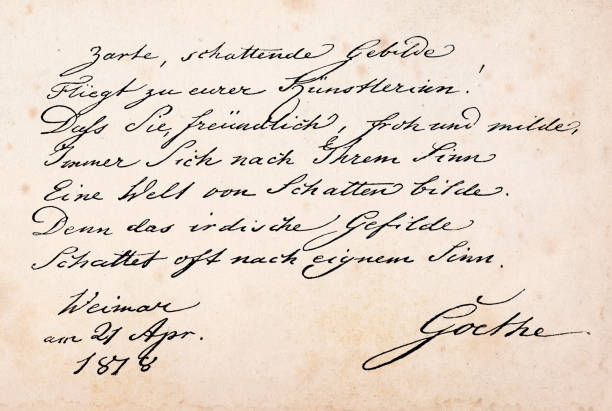 Zarte, schattende Gebilde
Fliegt zu eurer Künstlerinn!
Daß Sie, freundlich, froh und milde,
Immer Sich nach Ihrem Sinn
Eine Welt von Schatten bilde.
Denn das irdische Gefilde
Schattet oft nach eignem Sinn.
Weimar
am 21 Apr.
1818
Goethe